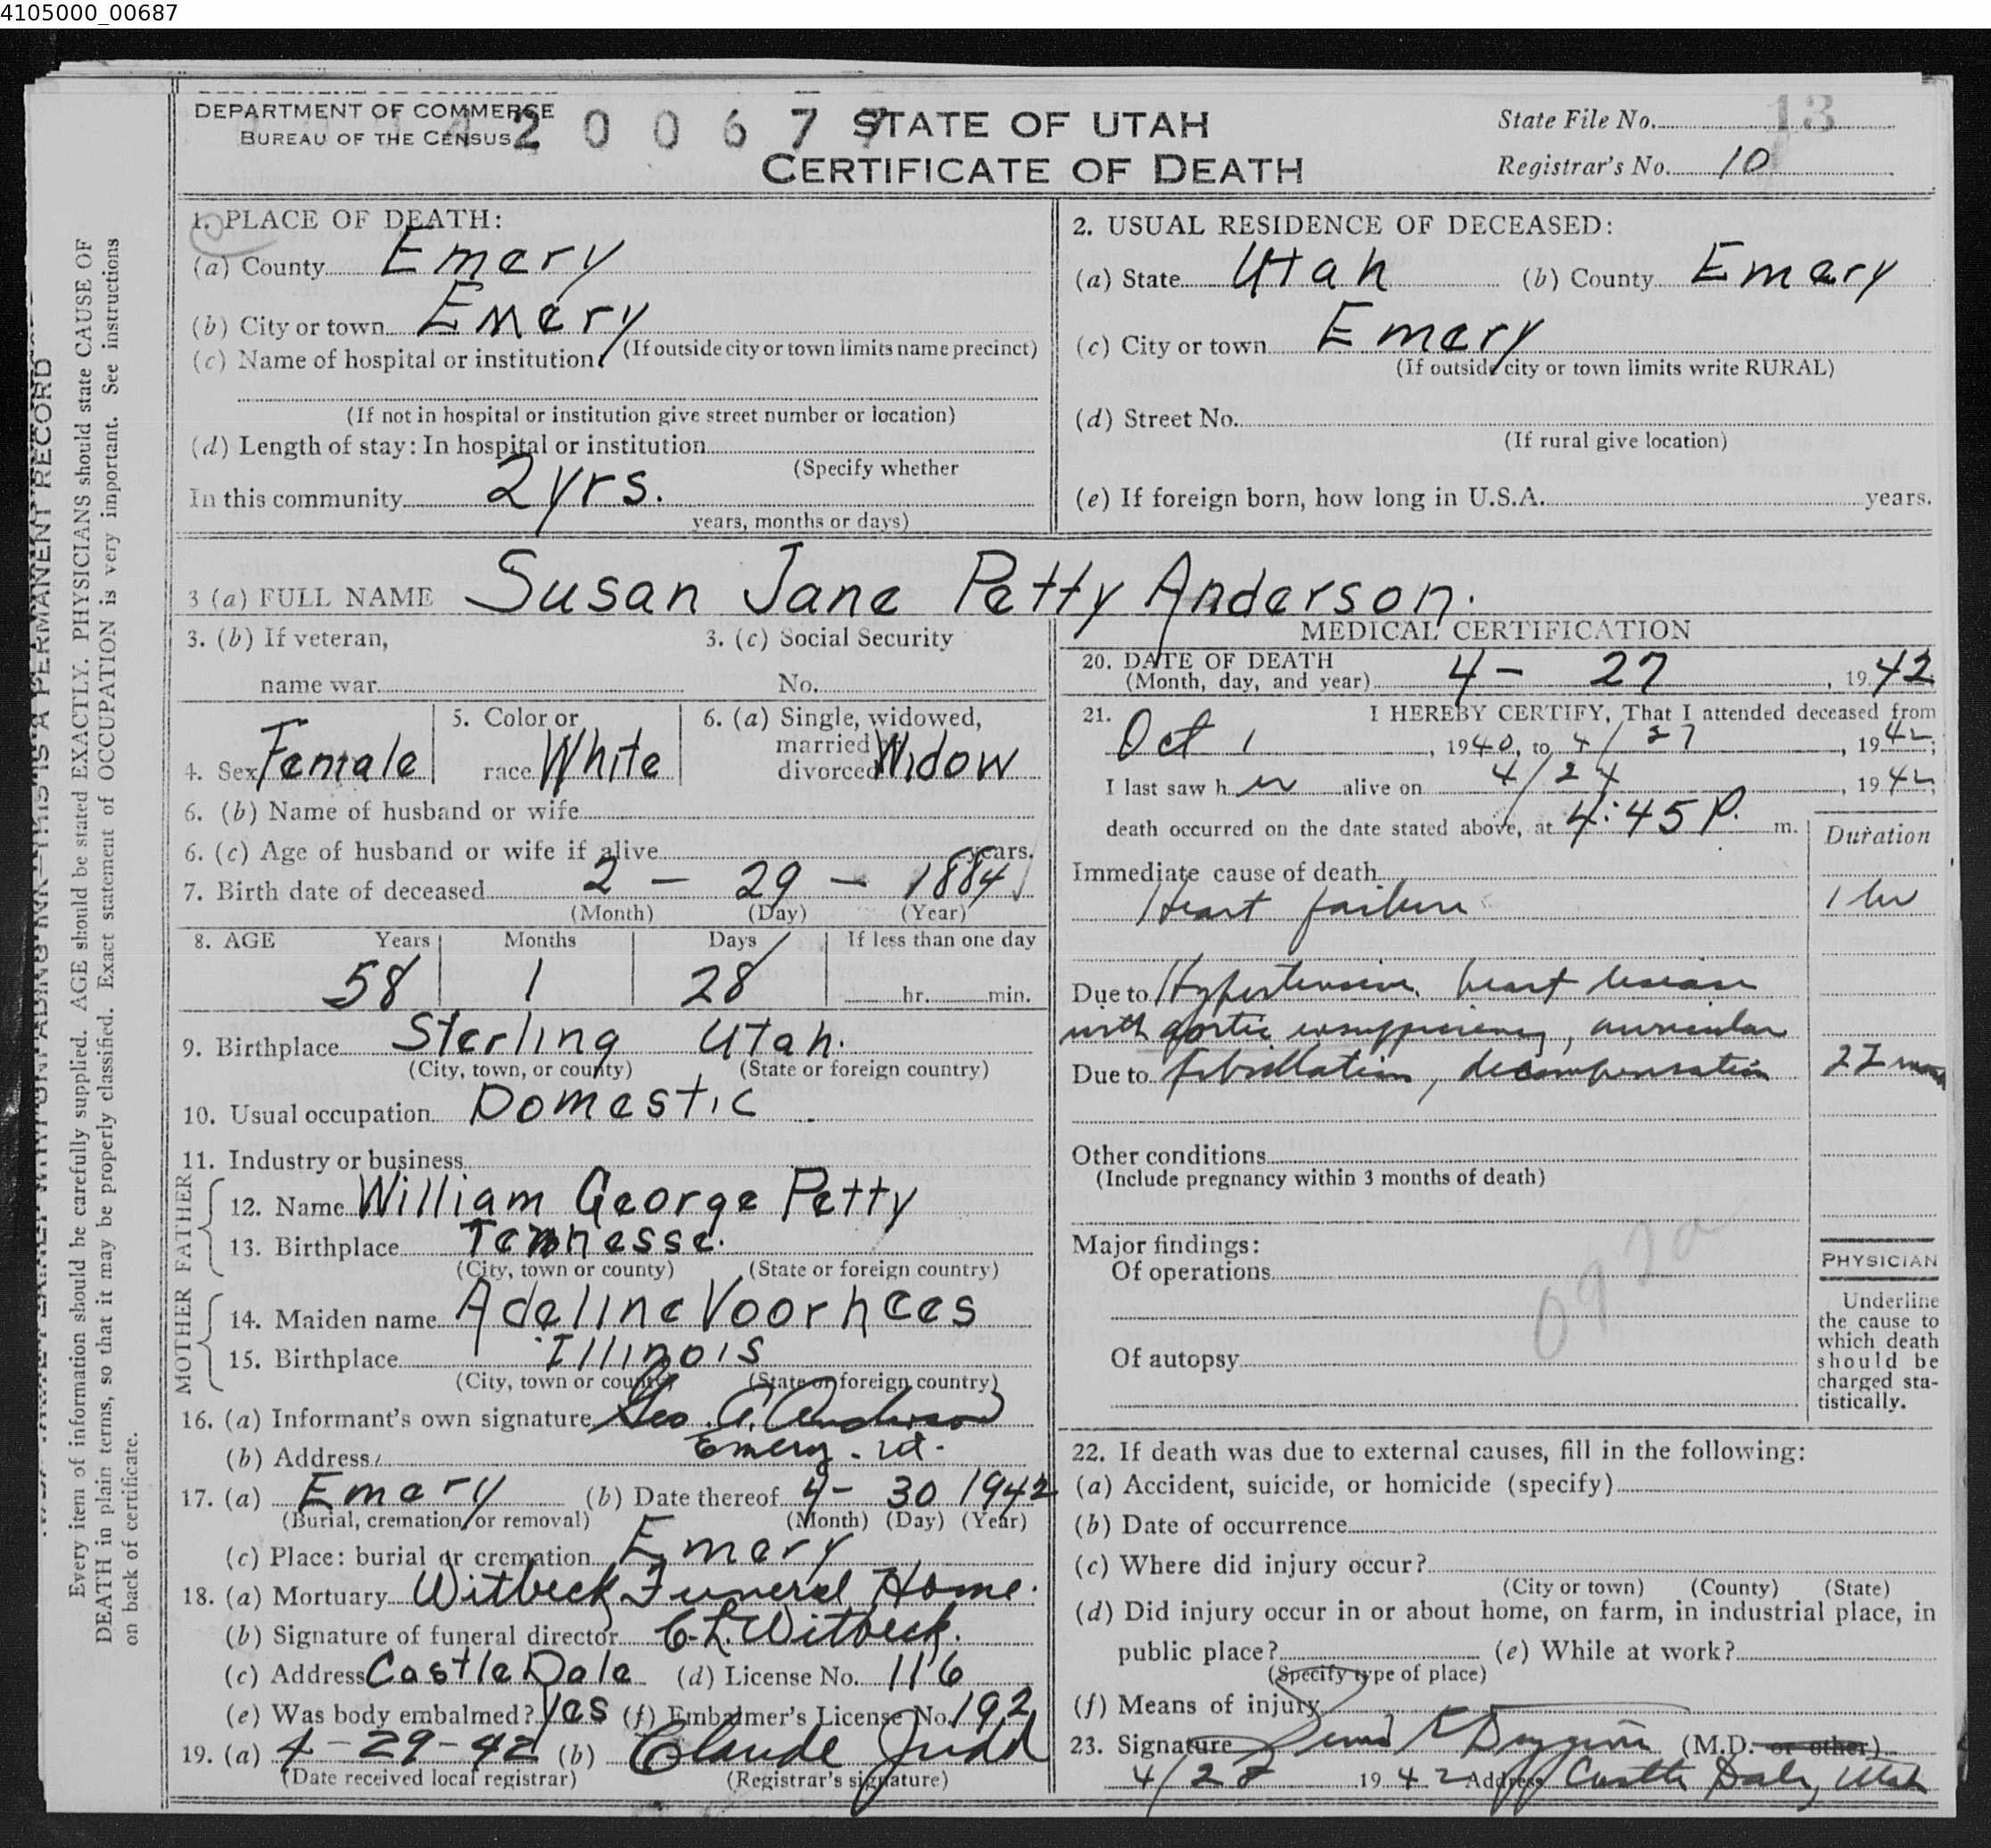 4105000_00687
DEPARTMENT OF COMMERCE
BUREAU OF THE CENSUS
4 2 0 0 6 7 7
STATE OF UTAH
CERTIFICATE OF DEATH
State File No. 13
Registrar's No. 10
1. PLACE OF DEATH:
(a) County Emery
(b) City or town Emery
(If outside city or town limits name precinct)
(c) Name of hospital or institution
(If not in hospital or institution give street number or location)
(d) Length of stay: In hospital or institution
(Specify whether
In this community 2 yrs.
years, months or days)
2. USUAL RESIDENCE OF DECEASED:
(a) State Utah (b) County Emery
(c) City or town Emery
(If outside city or town limits write RURAL)
(d) Street No.
(If rural give location)
(e) If foreign born, how long in U.S.A. years.
3 (a) FULL NAME Susan Jane Petty Anderson.
3. (b) If veteran,
name war
3. (c) Social Security
No.
4. Sex Female
5. Color or
race White
6. (a) Single, widowed,
married
divorced Widow
6. (b) Name of husband or wife
6. (c) Age of husband or wife if alive years.
7. Birth date of deceased 2 - 29 - 1884
(Month) (Day) (Year)
8. AGE Years Months Days If less than one day
58 1 28 hr. min.
9. Birthplace Sterling Utah.
(City, town, or county) (State or foreign country)
10. Usual occupation Domestic
11. Industry or business
FATHER
12. Name William George Petty
13. Birthplace Tennesse.
(City, town or county) (State or foreign country)
MOTHER
14. Maiden name Adeline Voorhees
15. Birthplace Illinois
(City, town or county) (State or foreign country)
16. (a) Informant's own signature Geo. A. Anderson
(b) Address Emery. Ut.
17. (a) Emery (b) Date thereof 4- 30 1942
(Burial, cremation, or removal) (Month) (Day) (Year)
(c) Place: burial or cremation Emery
18. (a) Mortuary Witbeck Funeral Home.
(b) Signature of funeral director C. L. Witbeck.
(c) Address Castle Dale (d) License No. 116
(e) Was body embalmed? Yes (f) Embalmer's License No. 192
19. (a) 4-29-42 (b) Claude Judd
(Date received local registrar) (Registrar's signature)
MEDICAL CERTIFICATION
20. DATE OF DEATH
(Month, day, and year) 4- 27, 1942
21. I HEREBY CERTIFY, That I attended deceased from
Oct 1, 1940, to 4/27, 1942;
I last saw her alive on 4/24, 1942;
death occurred on the date stated above, at 4:45 P. m.
Duration
Immediate cause of death
Heart failure 1 hr
Due to Hypertensive heart disease
with aortic insufficiency, auricular
Due to fibrillation, decompensation 22
Other conditions
(Include pregnancy within 3 months of death)
Major findings:
Of operations
Of autopsy
092a
PHYSICIAN
Underline
the cause to
which death
should be
charged sta-
tistically.
22. If death was due to external causes, fill in the following:
(a) Accident, suicide, or homicide (specify)
(b) Date of occurrence
(c) Where did injury occur?
(City or town) (County) (State)
(d) Did injury occur in or about home, on farm, in industrial place, in
public place? (e) While at work?
(Specify type of place)
(f) Means of injury
23. Signature (M.D. or other)
4/28 1942 Address Castle Dale, Utah
Every item of information should be carefully supplied. AGE should be stated EXACTLY. PHYSICIANS should state CAUSE OF
DEATH in plain terms, so that it may be properly classified. Exact statement of OCCUPATION is very important. See instructions
on back of certificate.
WITH UNFADING INK—THIS IS A PERMANENT RECORD